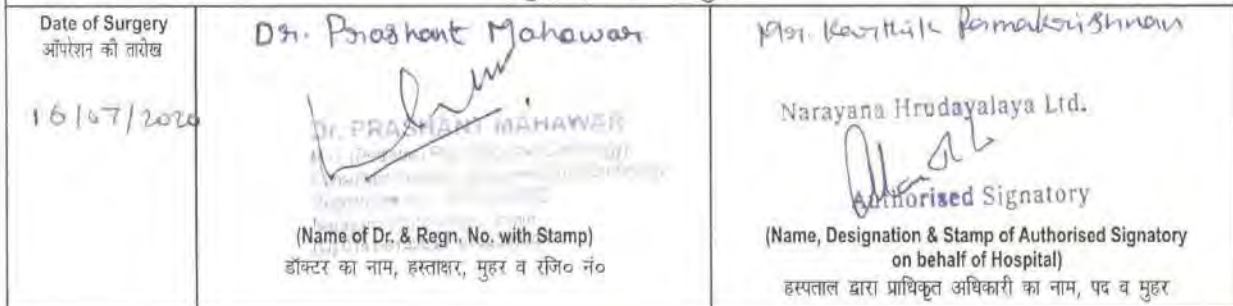 Date of Surgery
ऑपरेशन की तारीख
16/07/2020
Dr. Prashant Mahawar
Dr. PRASHANT MAHAWAR
(Name of Dr. & Regn. No. with Stamp)
डॉक्टर का नाम, हस्ताक्षर, मुहर व रजि० नं०
Mr. Karthik Ramakrishnan
Narayana Hrudayalaya Ltd.
Authorised Signatory
(Name, Designation & Stamp of Authorised Signatory
on behalf of Hospital)
हस्पताल द्वारा प्राधिकृत अधिकारी का नाम, पद व मुहर